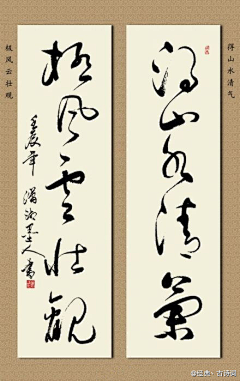 得山水清气
得山水清氣
極風雲壯觀
壬辰年
极风云壮观
古诗词